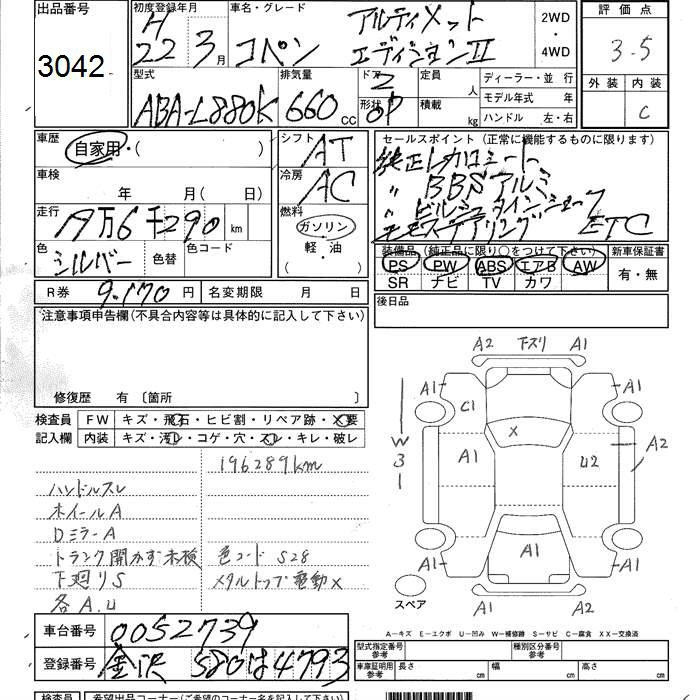 出品番号
3042
初度登録年月
H
22 3月
車名・グレード
コペン
アルティメット
エディションⅡ
2WD
・
4WD
評価点
3.5
外装 内装
C
型式
ABA-L880K
排気量
660 cc
ドア
2
形状
OP
定員
人
積載
kg
ディーラー・並 行
モデル年式 年
ハンドル 左・右
車歴
自家用・( )
シフト
AT
車検
年 月( 日)
冷房
AC
走行
19万6千290 km
燃料
ガソリン
・
軽・油
( )
色
シルバー
色替
色コード
セールスポイント (正常に機能するものに限ります)
純正レカロシート
〃 BBSアルミ
〃 ビルシュタインショック
〃 モモステアリング ETC
装備品 (純正品に限り○をつけて下さい)
PS PW ABS エアB AW
SR ナビ TV カワ
新車保証書
有・無
R券 9.170円
名変期限 月 日
後日品
注意事項申告欄(不具合内容等は具体的に記入して下さい)
修復歴 有 〔箇所 〕
検査員
記入欄
FW キズ・飛石・ヒビ割・リペア跡・X要
内装 キズ・汚レ・コゲ・穴・スレ・キレ・破レ
196289km
ハンドルスレ
ホイールA
DミラーA
トランク開かず未検
色コード S28
下廻りS
メタルトップ電動×
各A.U
A2 下スリ A1
A1 A1
C1
X
W
3
1
A1
U2
A2
A1
A1 A1
A2 A1
スペア
A-キズ E-エクボ U-凹み W-補修跡 S-サビ C-腐食 XX-交換済
車台番号 0052739
登録番号 金沢 580は4793
型式指定番号
参考
種別区分番号
参考
車庫証明用
参考
長さ cm
幅 cm
高さ cm
検査員
希望出品コーナー(ご希望のコーナー名を記入して下さい)